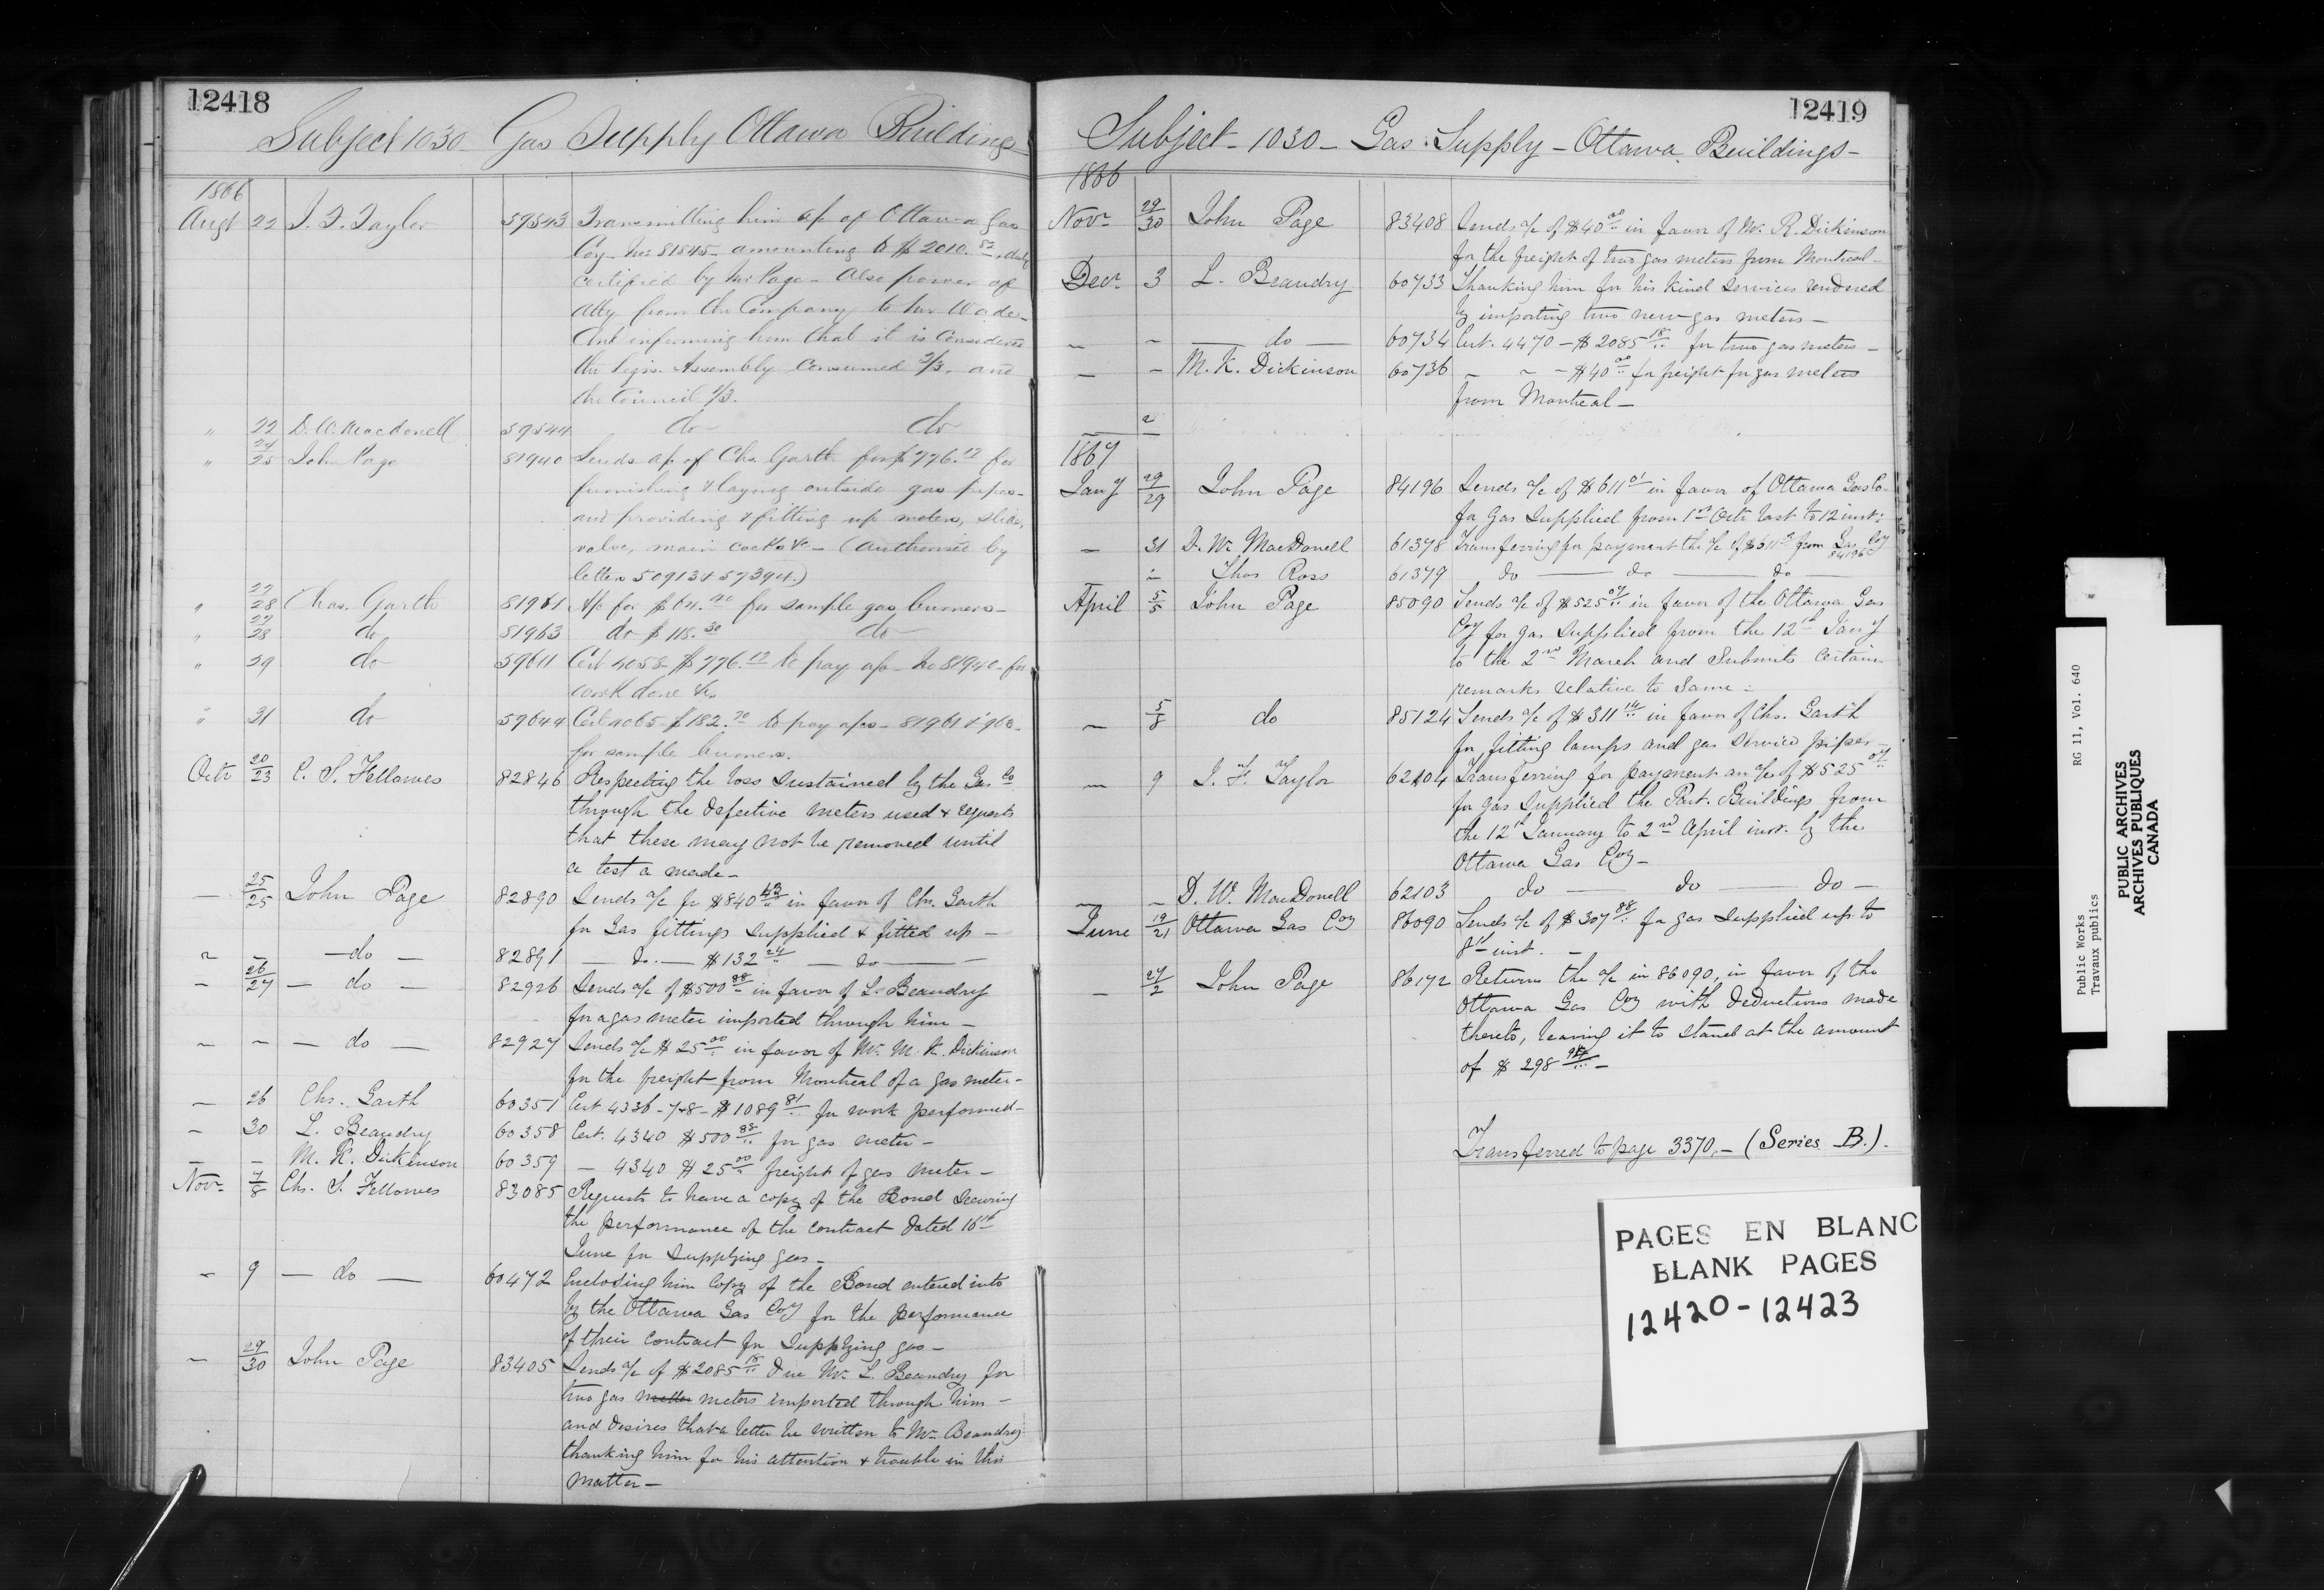 12418
Subject 1030 Gas Supply Ottawa Buildings
1866
Augt 22 J. F. Taylor 59543 Transmitting him a/c of Ottawa Gas
Coy. No. 81845 amounting to $2010.82, duly
certified by Mr Page - Also power of
atty from the Company to Mr Wade.
And informing him that it is considered
the Legis. Assembly consumed 2/3, and
the Council 1/3.
" 22 D. W. Macdonell 59544 do do
" 24/25 John Page 81940 Sends a/c of Chs. Garth for $776.12 for
furnishing & laying outside gas pipes -
and providing & fitting up meters, slide,
valve, main cocks &c - (authorised by
letters 50913 & 57394.)
" 27/28 Chas. Garth 81961 A/c for $64.40 for sample gas burners -
" 27/28 do 81963 do $118.30 do
" 29 do 59611 Cert 4058 $776.12 to pay a/c - No 81940 - for
work done &c
" 31 do 59644 Cert 4065 $182.70 to pay a/cs - 81961 & 963 -
for sample burners.
Octr 20/23 C. S. Fellowes 82846 Respecting the loss sustained by the Gas Co
through the defective meters used & requests
that these may not be removed until
a test a made -
— 25/25 John Page 82890 Sends a/c for $840 43 in favor of Chs. Garth
for Gas fittings supplied & fitted up -
" - do - 82891 — do. — $132 24 — do —
- 26/27 - do - 82926 Sends a/c of $500 88 in favor of L. Beaudry
for a gas meter imported through him -
- - - do - 82927 Sends a/c $25 00 in favor of Mr. M. K. Dickinson
for the freight from Montreal of a gas meter -
- 26 Chs. Garth 60351 Cert 4336 - 7 & 8 - $1089 81 for work performed -
- 30 L. Beaudry 60358 Cert. 4340 $500 88 for gas meter -
- - M. K. Dickinson 60359 - 4340 $25 00 freight of gas meter -
Novr. 7/8 Chs. S. Fellowes 83085 Requests to have a copy of the Bond securing
the performance of the contract dated 16th
June for supplying gas -
- 9 - do - 60472 Enclosing him copy of the Bond entered into
by the Ottawa Gas Coy for the performance
of their contract for supplying gas -
- 29/30 John Page 83405 Sends a/c of $2085 18 due Mr. L. Beaudry for
two gas meters imported through him -
and desires that a letter be written to Mr. Beaudry
thanking him for his attention & trouble in this
matter -
12419
Subject - 1030 - Gas Supply - Ottawa Buildings -
1866
Novr 29/30 John Page 83408 Sends a/c of $40 00 in favor of Mr. R. Dickinson
for the freight of two gas meters from Montreal -
Decr. 3 L. Beaudry 60733 Thanking him for his kind services rendered
by importing two new gas meters -
- - — do — 60734 Cert. 4470 - $2085 18 for two gas meters -
- - M. K. Dickinson 60736 - - - $40 00 for freight for gas meters
from Montreal -
1867
Jany 29/29 John Page 84196 Sends a/c of $611 01 in favor of Ottawa Gas Co.
for gas supplied from 1st Octr last to 12 inst:
- 31 D. W. MacDonell 61378 Transferring for payment the a/c of $611 01 from Gas Coy
84196
Thos Ross 61379 do — do — do
April 5/5 John Page 85090 Sends a/c of $525 07 in favor of the Ottawa Gas
Coy for gas supplied from the 12th Jany
to the 2nd March and submits certain
remarks relative to same -
- 5/8 do 85124 Sends a/c of $311 14 in favor of Chs. Garth
for fitting lamps and gas service pipes -
- 9 J. F. Taylor 62104 Transferring for payment an a/c of $525 07
for gas supplied the Parl. Buildings from
the 12th January to 2nd April inst. by the
Ottawa Gas Coy -
- - D. W. MacDonell 62103 do — do — do -
June 19/21 Ottawa Gas Coy 86090 Sends a/c of $307 88 for gas supplied up to
8th inst. -
- 27/2 John Page 86172 Returns the a/c in 86090, in favor of the
Ottawa Gas Coy with deductions made
thereto, leaving it to stand at the amount
of $298 -
Transferred to page 3370. - (Series B.).
PAGES EN BLANC
BLANK PAGES
12420-12423
Public Works RG 11, Vol. 640
Travaux publics
PUBLIC ARCHIVES
ARCHIVES PUBLIQUES
CANADA